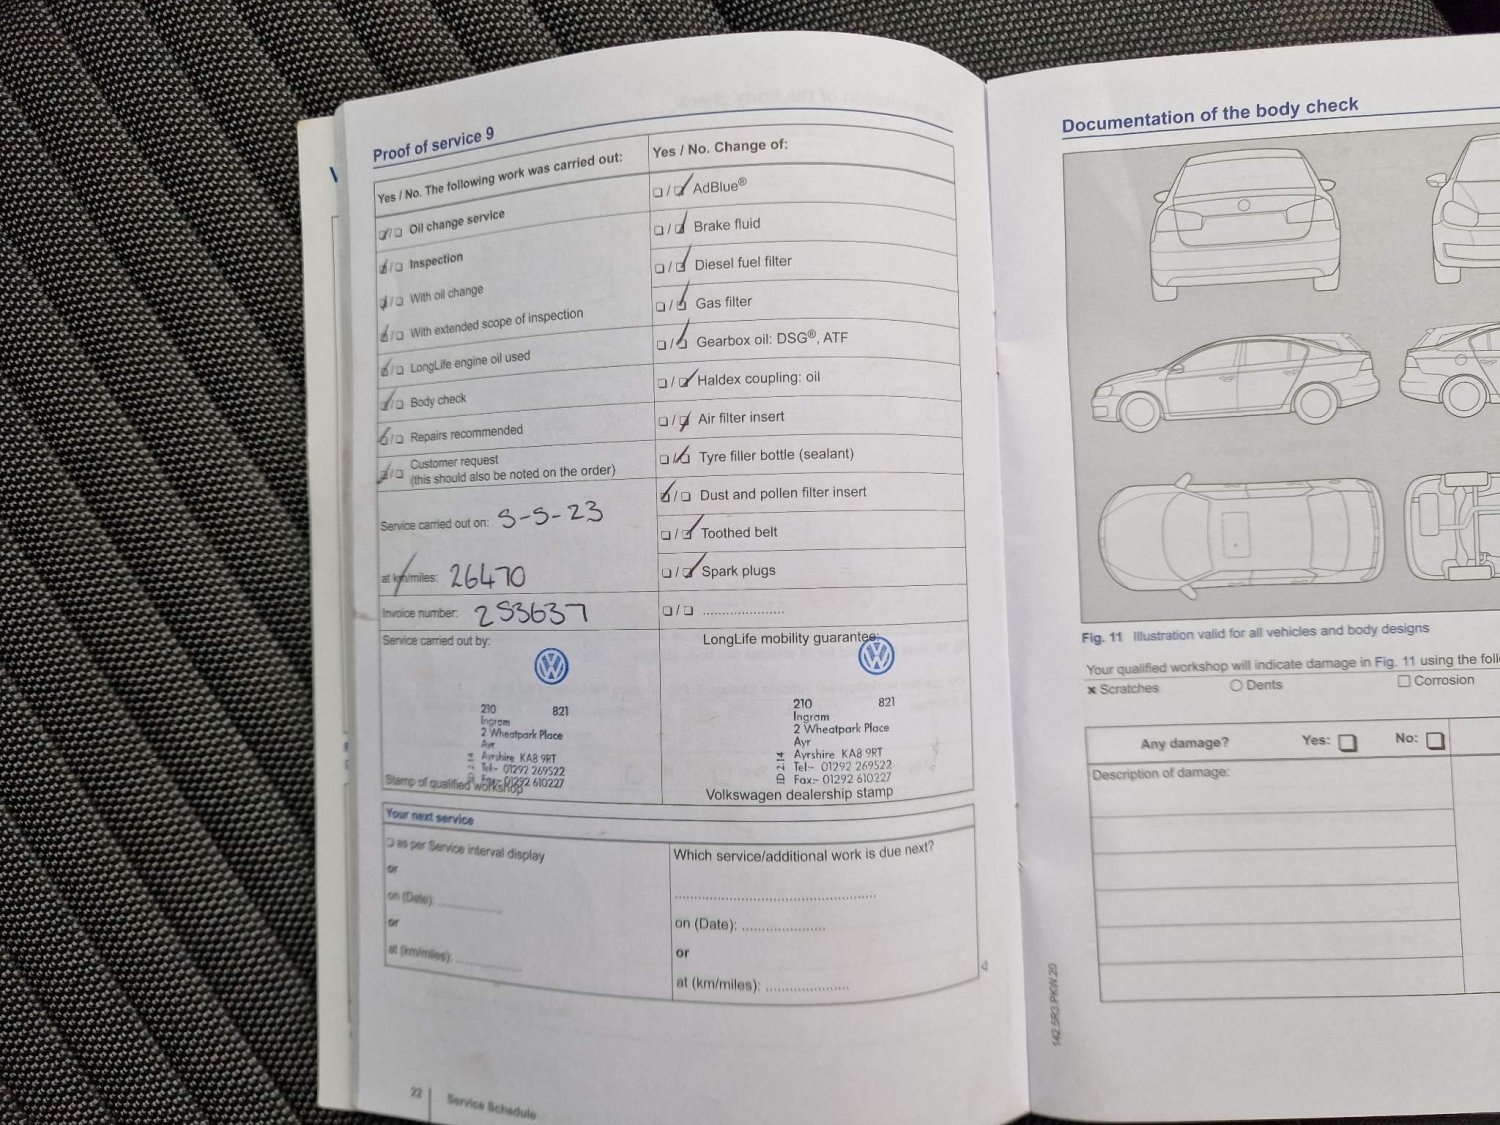 Proof of service 9
Yes / No. The following work was carried out:
Oil change service
Inspection
With oil change
With extended scope of inspection
LongLife engine oil used
Body check
Repairs recommended
Customer request
(this should also be noted on the order)
Service carried out on: 5-5-23
at km/miles: 26470
Invoice number: 253637
Service carried out by:
210 821
Ingram
2 Wheatpark Place
Ayr
Ayrshire KA8 9RT
Tel:- 01292 269522
Fax:- 01292 610227
Stamp of qualified workshop
Yes / No. Change of:
AdBlue®
Brake fluid
Diesel fuel filter
Gas filter
Gearbox oil: DSG®, ATF
Haldex coupling: oil
Air filter insert
Tyre filler bottle (sealant)
Dust and pollen filter insert
Toothed belt
Spark plugs
LongLife mobility guarantee:
210 821
Ingram
2 Wheatpark Place
Ayr
Ayrshire KA8 9RT
Tel:- 01292 269522
Fax:- 01292 610227
ID 214
Volkswagen dealership stamp
Your next service
as per Service interval display
or
on (Date):
or
at (km/miles):
Which service/additional work is due next?
on (Date):
or
at (km/miles):
22 Service Schedule
Documentation of the body check
Fig. 11 Illustration valid for all vehicles and body designs
Your qualified workshop will indicate damage in Fig. 11 using the
Scratches Dents Corrosion
Any damage? Yes: No:
Description of damage:
142.5R3.PKW.20